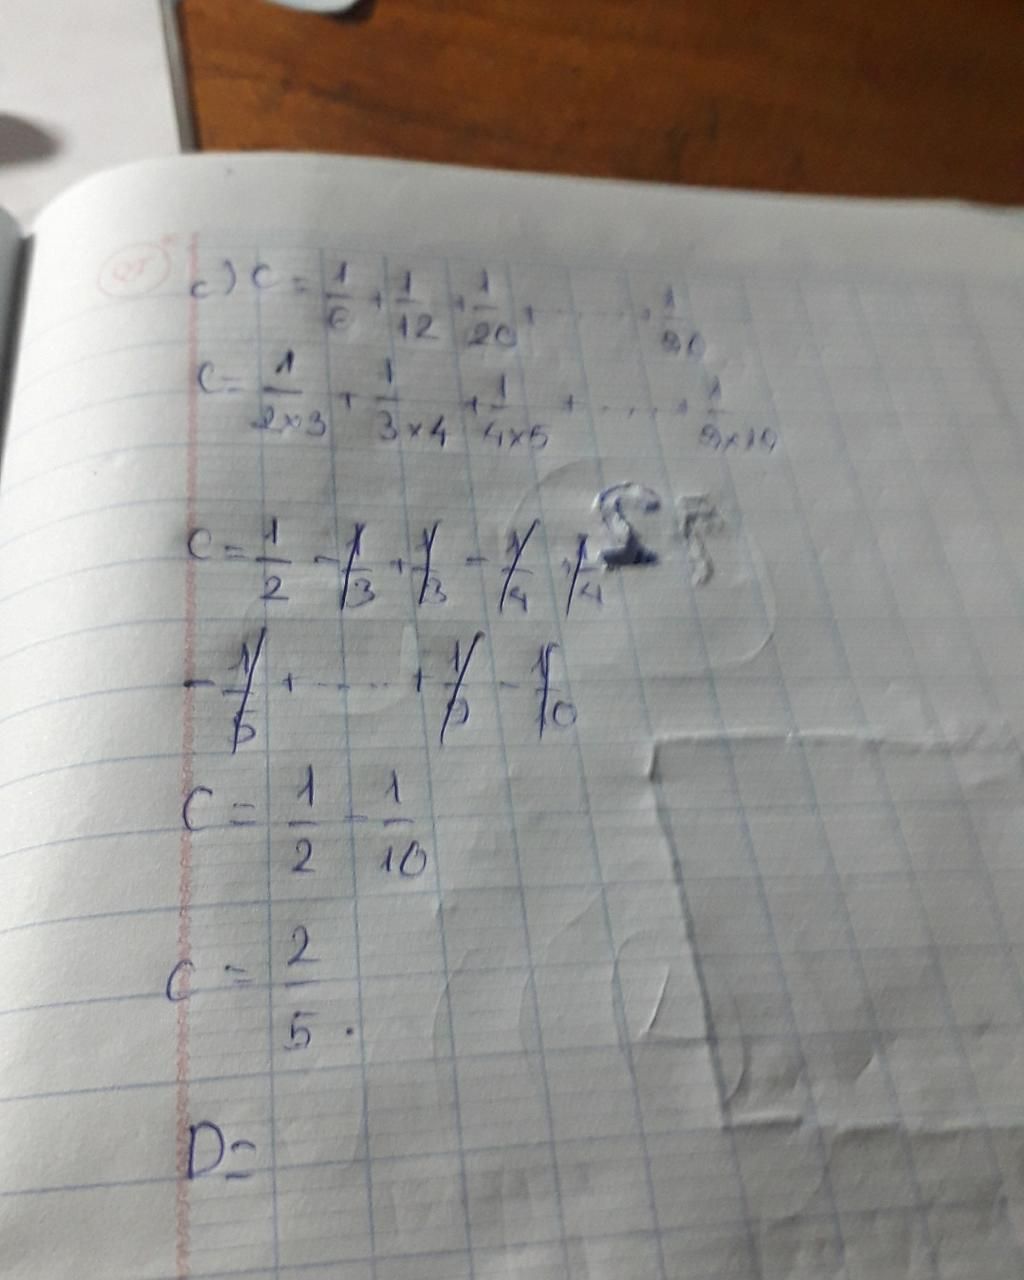 c) C = 1/6 + 1/12 + 1/20 + ..... + 1/90
C = 1/2×3 + 1/3×4 + 1/4×5 + .... + 1/9×10
C = 1/2 - 1/3 + 1/3 - 1/4 + 1/4
- 1/5 + ..... + 1/9 - 1/10
C = 1/2 - 1/10
C = 2/5 .
D =